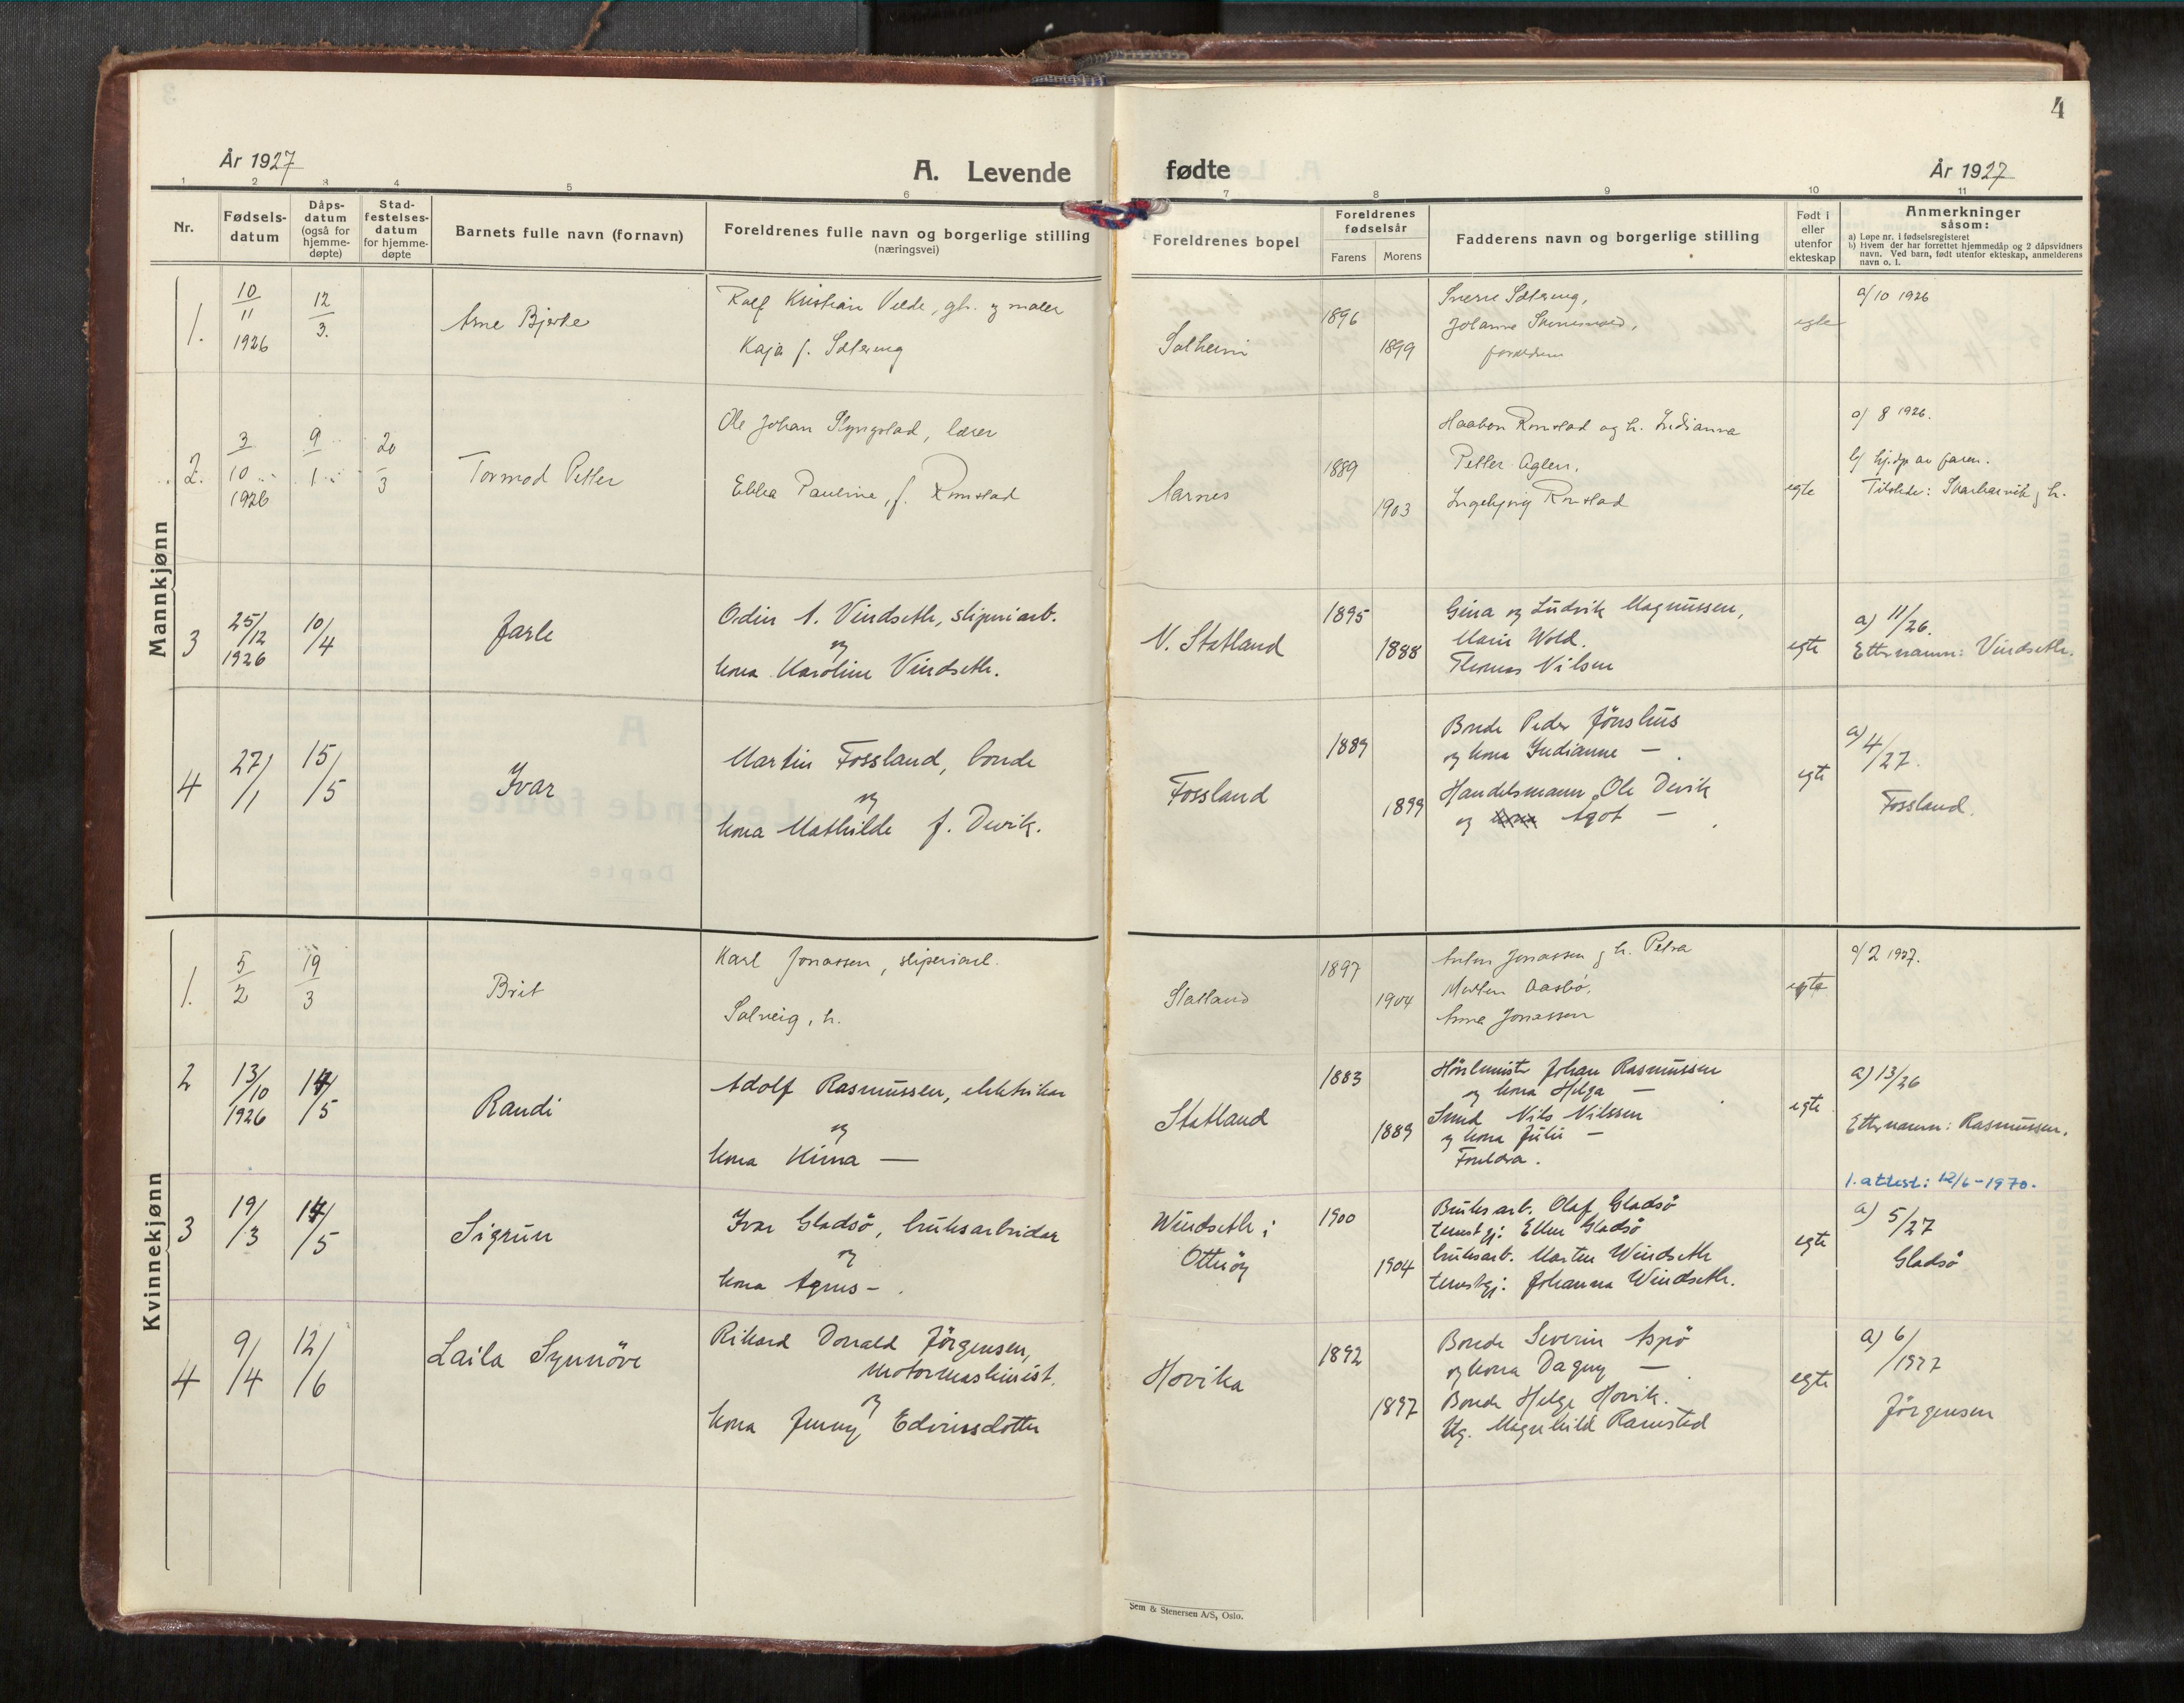 4
År 1927
A. Levende fødte
År 1927
1 2 3 4 5 6 7 8 9 10 11
Nr.
Fødsels-
datum
Dåps-
datum
(også for
hjemme-
døpte)
Stad-
festelses-
datum
for hjemme-
døpte
Barnets fulle navn (fornavn)
Foreldrenes fulle navn og borgerlige stilling
(næringsvei)
Foreldrenes bopel
Foreldrenes
fødselsår
Farens
Morens
Fadderens navn og borgerlige stilling
Født i
eller
utenfor
ekteskap
Anmerkninger
såsom:
a) Løpe nr. i fødselsregisteret
b) Hvem der har forrettet hjemmedåp og 2 dåpsvidners
navn. Ved barn, født utenfor ekteskap, anmelderens
navn o. l.
Mannkjønn
1.
10
11
1926
12
3.
Arne Bjerke
Rolf Kristian Velde, gbr. og maler
Kaja f.
Solheim
1896
1899
Sverre
Johanne
foreldrene
egte
a/ 10 1926
2.
3
10
1926
9
1
20
3
Tormod Petter
Ole Johan Slyngstad, lærer
Ebba Pauline, f. Romstad
Aarnes
1889
1903
Haakon Romstad og h. Indianna
Petter Aglen.
Ingebjørg Romstad
egte
a/ 8 1926.
b/ hj.dp av faren.
Tilstede: og h.
3
25/12
1926
10/4
Jarle
Odin A. Vindseth, sliperiarb.
og
kona Karoline Vindseth.
N. Statland
1895
1888
Gina og Ludvik Magnussen,
Marie Wold.
Thomas Nilsen
egte
a) 11/26.
Etternamn: Vindseth.
4
27/1
15/5
Ivar
Martin Fossland, bonde
og
kona Mathilde f. Devik.
Fossland
1889
1899
Bonde Peder Jönshus
og kona Indianne —
Handelsmann Ole Devik
og Agot —
egte
a) 4/27.
Fossland.
Kvinnekjønn
1.
5
2
19
3
Brit
Karl Jonassen, sliperiarb.
Solveig, h.
Statland
1897
1904
Anton Jonassen og h. Petra
Morten Aasbö,
Anna Jonassen
egte
a/ 2 1927.
2
13/10
1926
14/5
Randi
Adolf Rasmussen, elektrikar
og
kona —
Statland
1883
1889
Johan Rasmussen
og kona Helga —
Smed Nils Nilssen
og kona Julie —
Foreldra.
egte
a) 13/26
Etternamn: Rasmussen.
1. attest: 12/6-1970.
3
19/3
14/5
Sigrun
Ivar Gladsö, bruksarbeidar
og
kona Agnes —.
Windseth i
Otteröy
1900
1904
Bruksarb. Olaf Gladsö
tenestgj: Ellen Gladsö
bruksarb. Morten Windseth
tenestgj: Johanna Windseth.
egte
a) 5/27
Gladsö
4
9/4
12/6
Laila Synnöve
Rikard Donald Jörgensen,
motormaskinist.
og
kona Jenny Edvinsdotter
Hovika
1892
1897
Bonde Severin Aspö
og kona Dagny —
Bonde Helge Hovik.
Ug. Magnhild Ramstad
egte
a) 6/1927
Jörgensen
Sem & Stenersen A/S, Oslo.